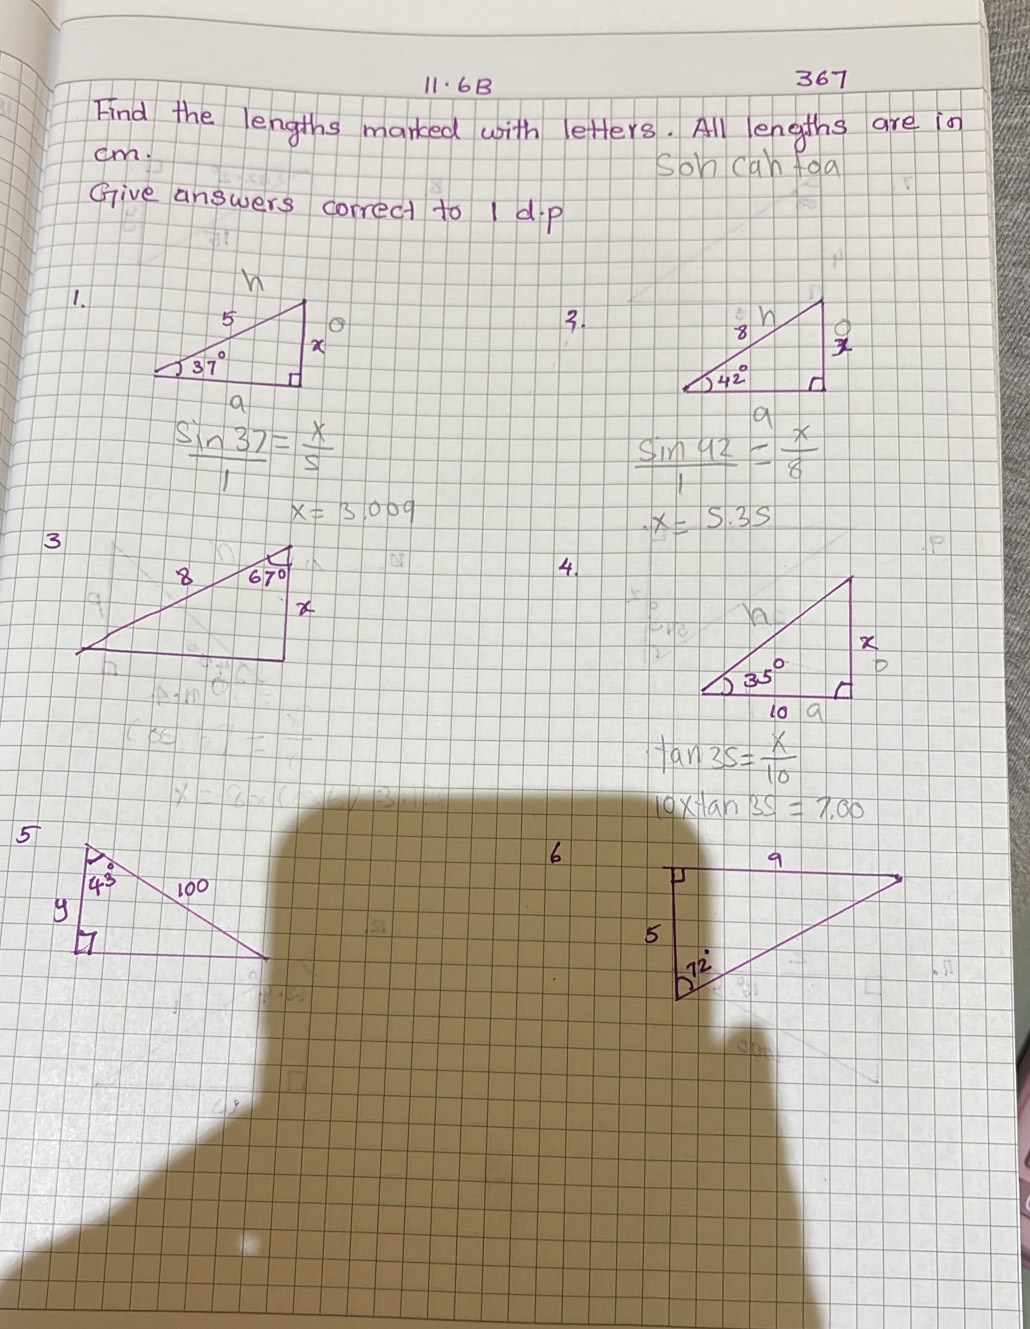 11.6B 367
Find the lengths marked with letters. All lengths are in
cm.
Soh cah toa
Give answers correct to 1 d.p
1.
h
5
o
x
37°
a
sin 37 = x
1 5
x = 3.009
2.
h
8
o
x
42°
a
sin 42 = x
1 8
x = 5.35
3
8
67°
x
4.
h
x
o
35°
10 a
tan 35 = x
10
10 x tan 35 = 7.00
5
43°
100
y
6
a
5
72°